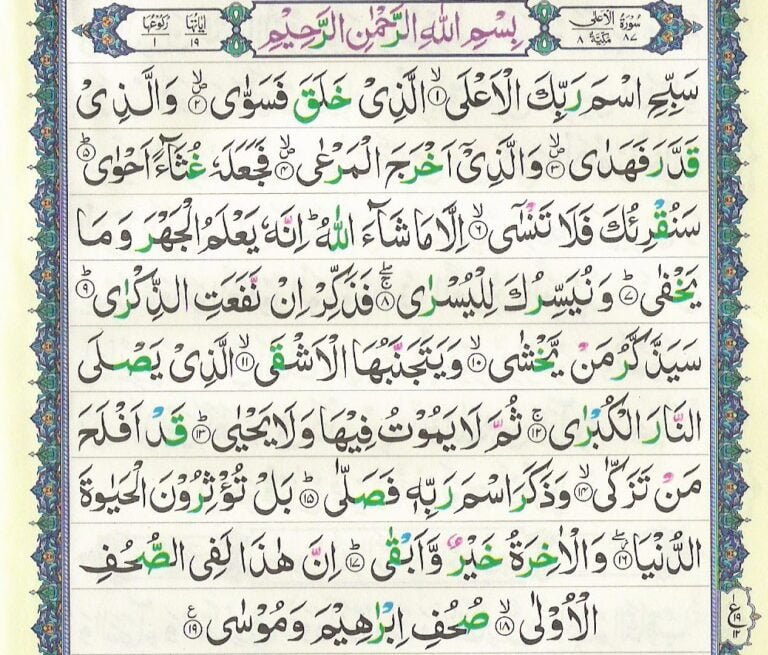 سُوْرَةُ ٨٧ الْاَعْلٰى مَكِّيَّةٌ ٨
بِسْمِ اللّٰهِ الرَّحْمٰنِ الرَّحِيْمِ
اٰيَاتُهَا ١٩ رُكُوْعُهَا ١
سَبِّحِ اسْمَ رَبِّكَ الْاَعْلَىۙ ١ الَّذِىْ خَلَقَ فَسَوّٰىۙ ٢ وَالَّذِىْ
قَدَّرَ فَهَدٰىۙ ٣ وَالَّذِىْٓ اَخْرَجَ الْمَرْعٰىۙ ٤ فَجَعَلَهٗ غُثَآءً اَحْوٰىؕ ٥
سَنُقْرِئُكَ فَلَا تَنْسٰٓىۙ ٦ اِلَّا مَا شَآءَ اللّٰهُؕ اِنَّهٗ يَعْلَمُ الْجَهْرَ وَمَا
يَخْفٰىؕ ٧ وَنُيَسِّرُكَ لِلْيُسْرٰىۚۖ ٨ فَذَكِّرْ اِنْ نَّفَعَتِ الذِّكْرٰىؕ ٩
سَيَذَّكَّرُ مَنْ يَّخْشٰىۙ ١٠ وَيَتَجَنَّبُهَا الْاَشْقَىۙ ١١ الَّذِىْ يَصْلَى
النَّارَ الْكُبْرٰىۚ ١٢ ثُمَّ لَا يَمُوْتُ فِيْهَا وَلَا يَحْيٰىؕ ١٣ قَدْ اَفْلَحَ
مَنْ تَزَكّٰىۙ ١٤ وَذَكَرَ اسْمَ رَبِّهٖ فَصَلّٰىؕ ١٥ بَلْ تُؤْثِرُوْنَ الْحَيٰوةَ
الدُّنْيَا ١٦ وَالْاٰخِرَةُ خَيْرٌ وَّاَبْقٰىؕ ١٧ اِنَّ هٰذَا لَفِى الصُّحُفِ
الْاُوْلٰىۙ ١٨ صُحُفِ اِبْرٰهِيْمَ وَمُوْسٰى ١٩
ع ١٩ ١٢